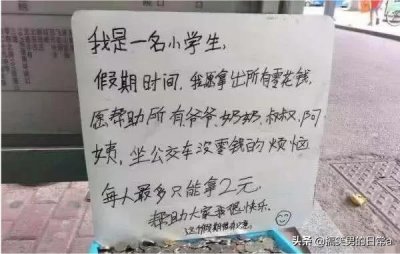 我是一名小学生，
假期时间，我愿拿出所有零花钱，
愿帮助所有爷爷、奶奶、叔叔、阿
姨，坐公交车没零钱的烦恼
每人最多只能拿2元
帮助大家我很快乐。
这个假期很有意
头条 @搞笑男的日常a